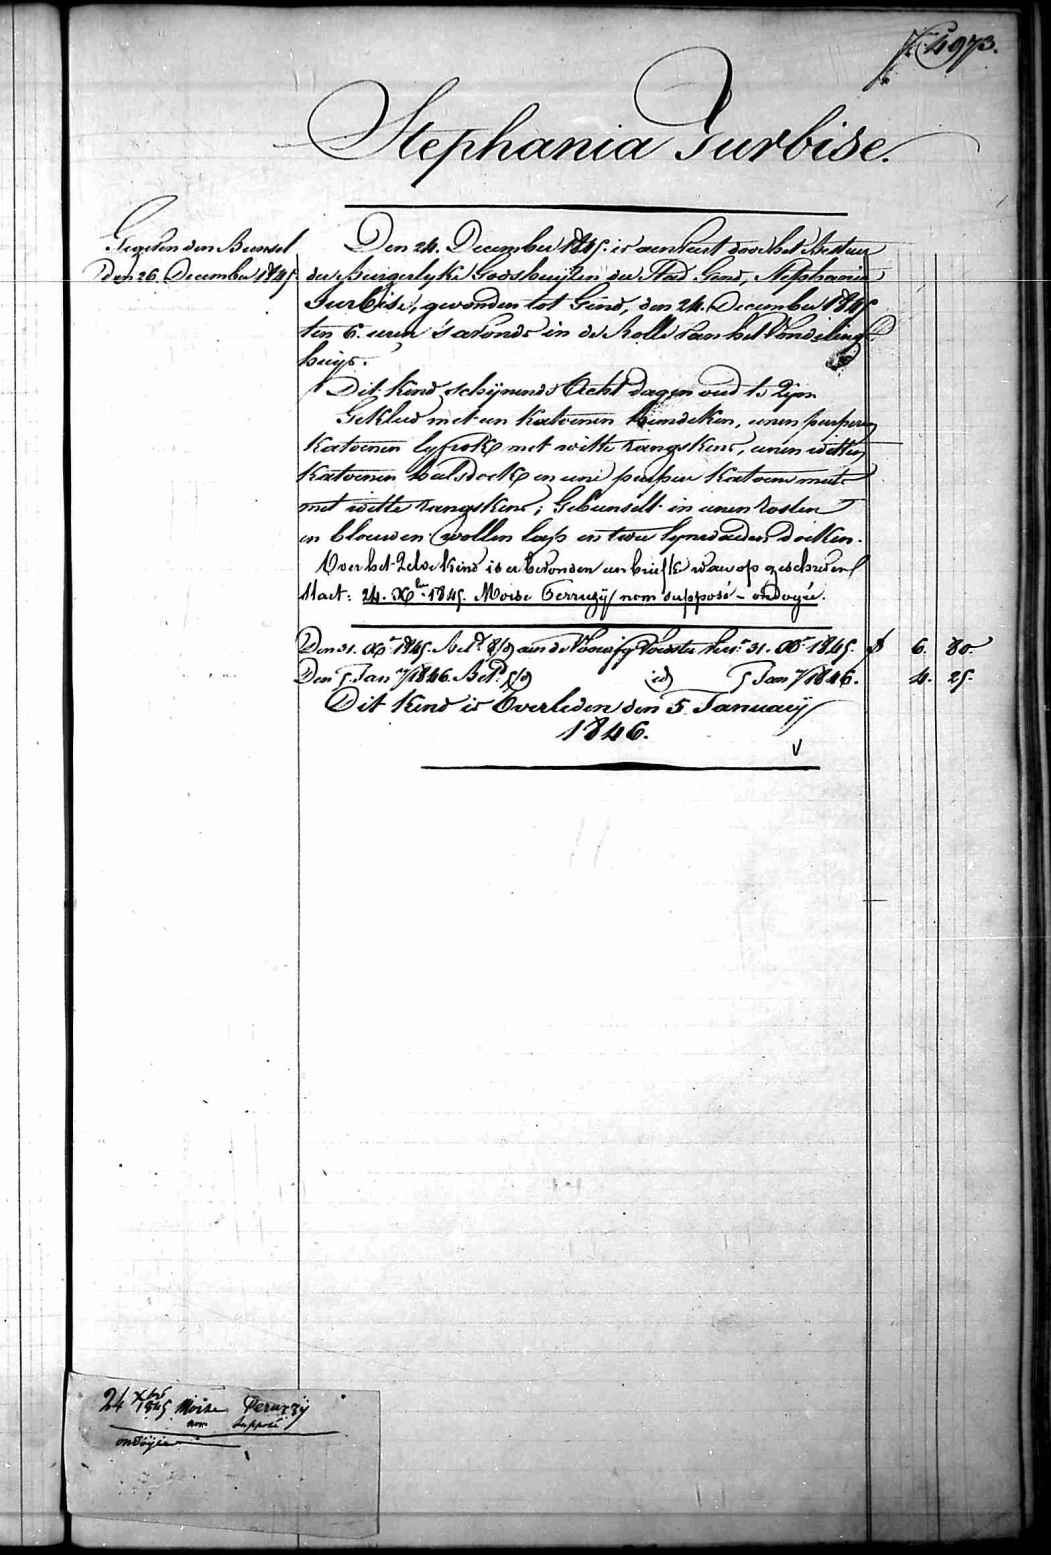 N° 4973.
Stephania Jurbise.
Gegeven den Bunsel
den 26. December 1845.
Den 24. December 1845. is aenveert door het Bestuer
der Burgerlyke Godshuijzen der Stad Gend, Stephania
Jurbise, gevonden tot Gend, den 24. December 1845
ten 6. uren 's avonds in de Rolle van het Vondeling-
huijs.
Dit kind schijnende Acht dagen oud te zijn
Gekleed met een katoenen hemdeken, eenen purperen
katoenen lyfrok met witte rangskens, eenen witten
katoenen halsdoek en eene purpere katoene muts
met witte rangskens; Gebunselt in eenen rosten
en blouwen wollen lap en twee lynwaeden doeken.
Over het zelve kind is er bevonden een briefke waer op geschreven
staet: 24. Xbre 1845. Moise Perruzij nom supposé - ondoyée.
Den 31. Xbr 1845. Bet. 8/d aen de Voedster 31. Xbr 1845. f 6. 80.
Den 5 Jany 1846. Bet. 5/d id 5 Jany 1846. 4. 25.
Dit kind is Overleden den 5 January
1846.
24 Xbre 1845 Moise Peruzzij
nom supposé
ondoyée